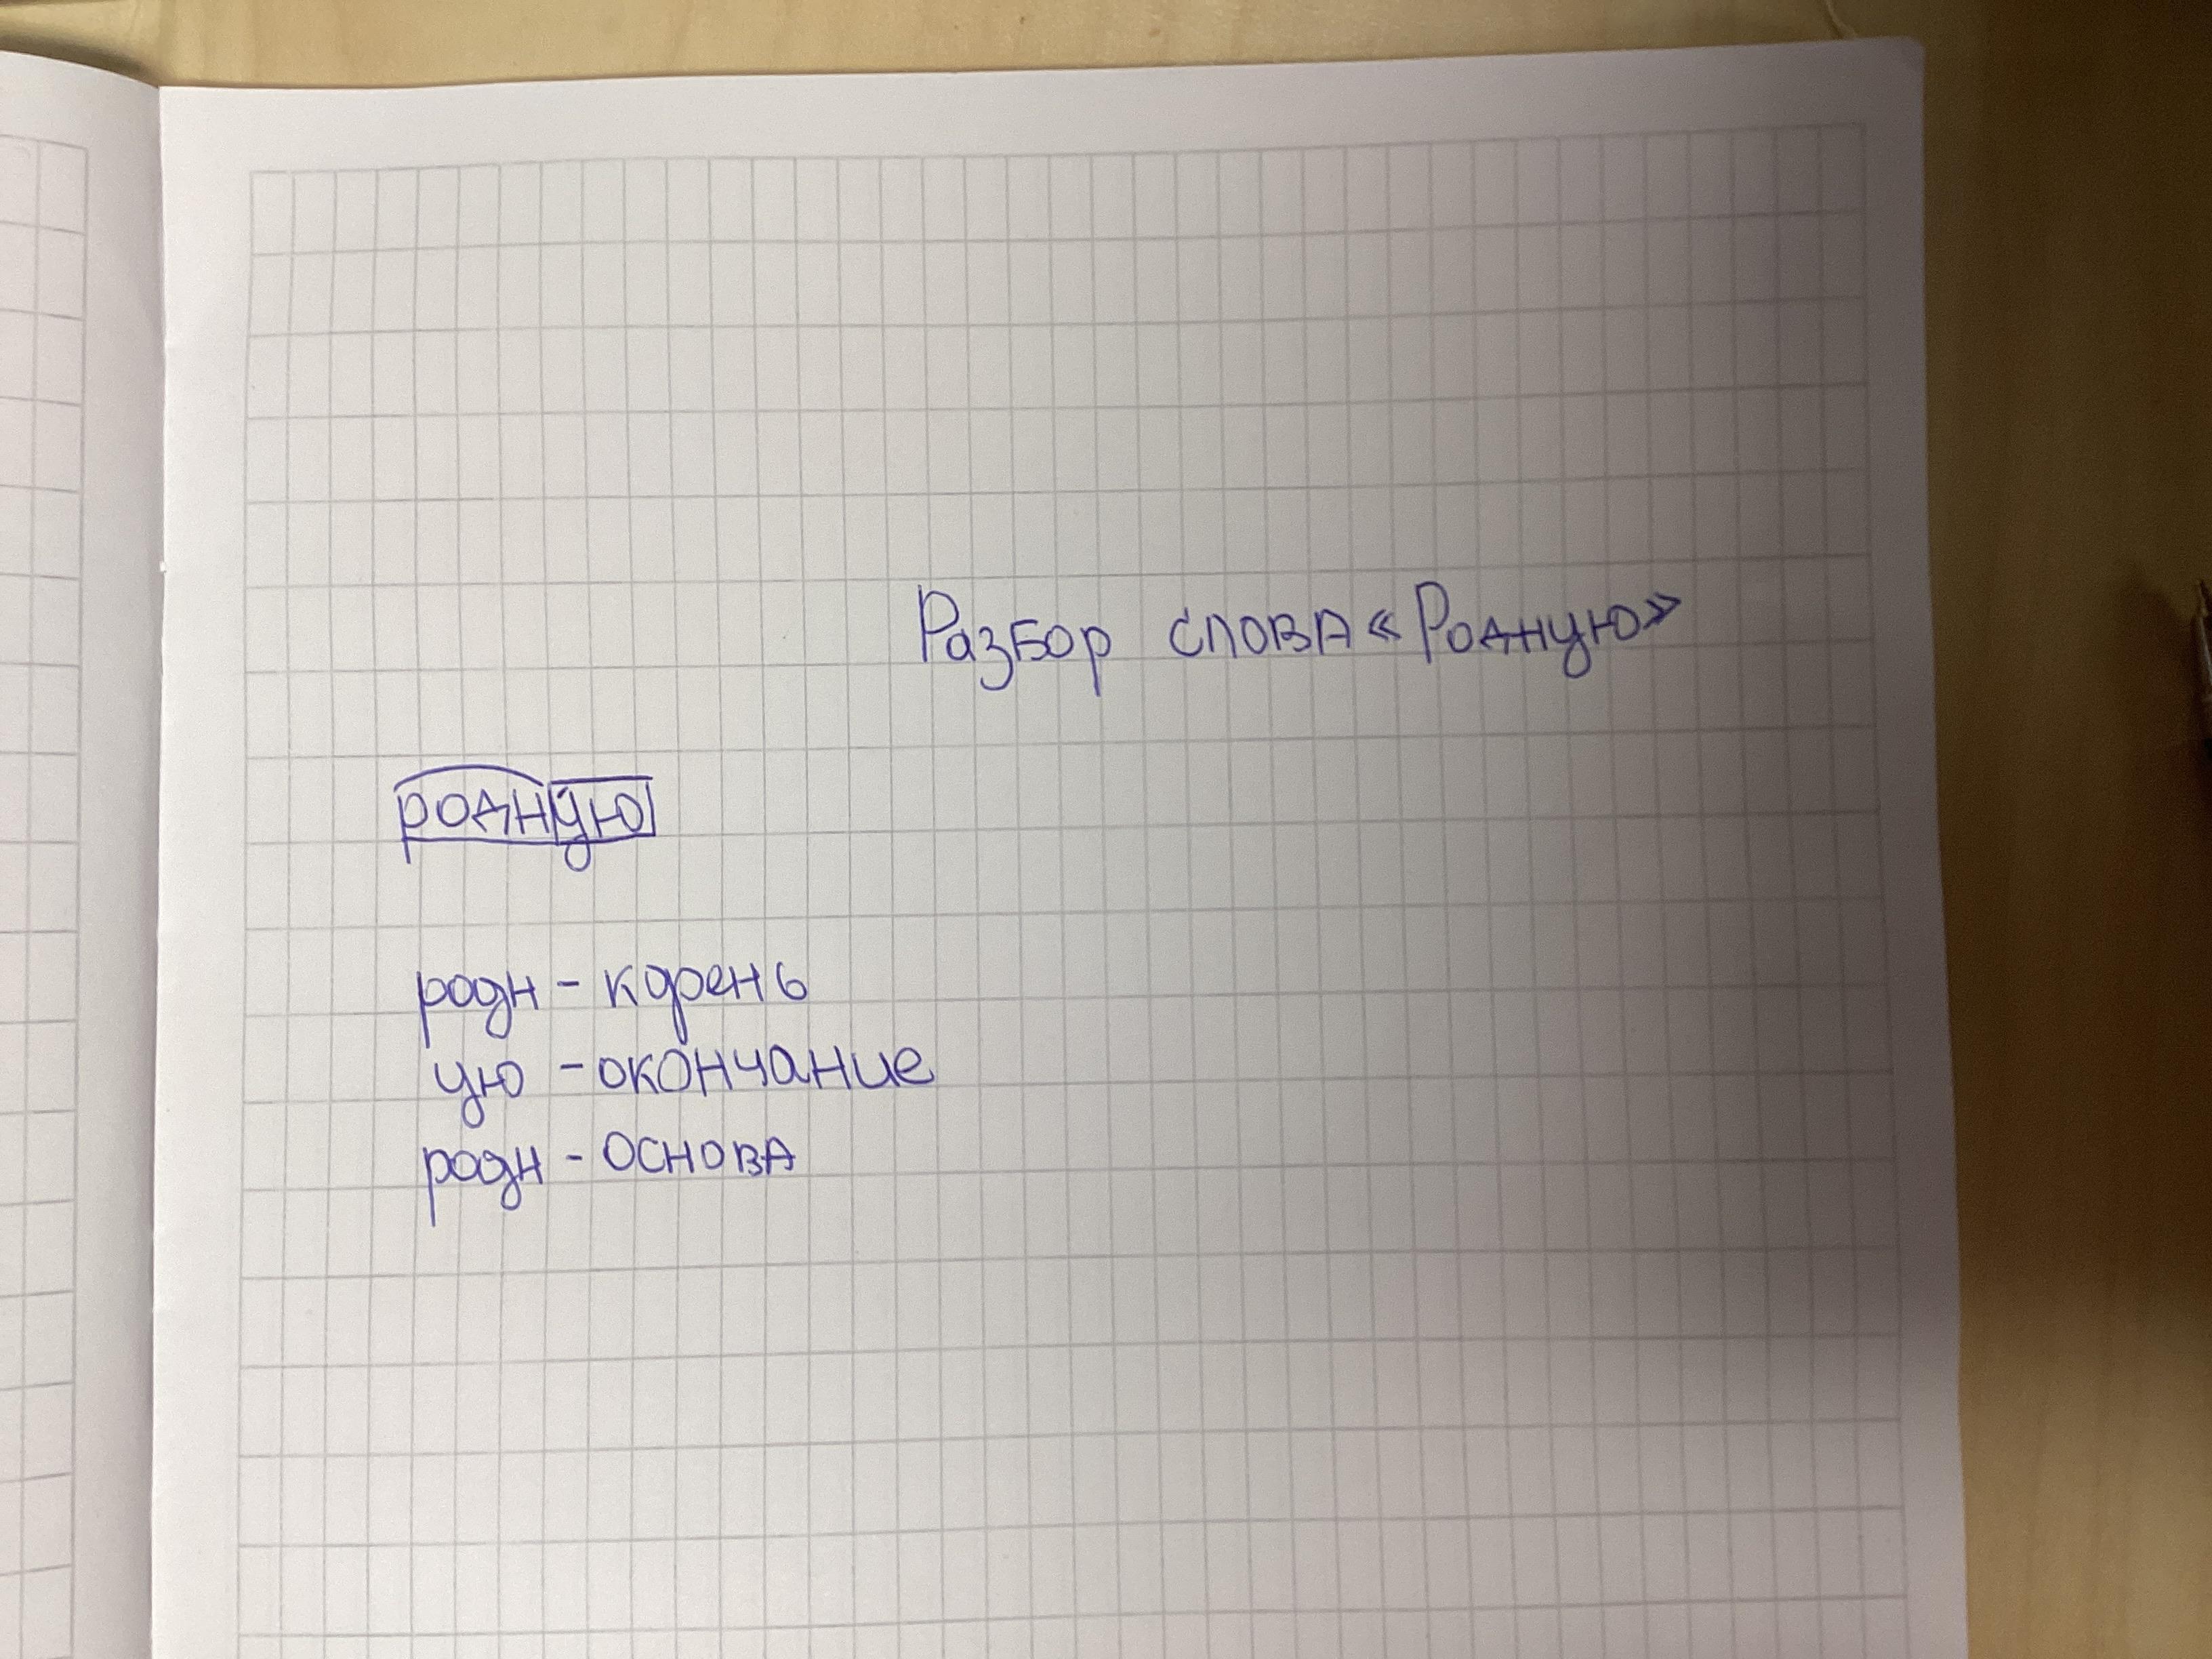 Разбор слова «Родную»
родную
родн - корень
ую - окончание
родн - основа